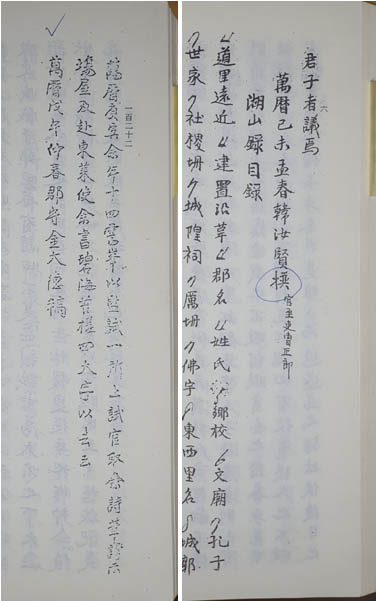 六
君子者議焉
萬曆己未孟春韓汝賢撰 官至吏曹正郎
湖山錄目錄
道里遠近 建置沿革 郡名 姓氏 鄉校 文廟 孔子
世家 社稷坍 城隍祠 厲坍 佛宇 東西里名 城郭
一百二十二
萬曆庚子余年十四當舉以監試一所上試官取余詩草誇示
場屋及赴東萊使余書碧海舊槎四大字以去云
萬曆戊午仲春郡守金大德稿